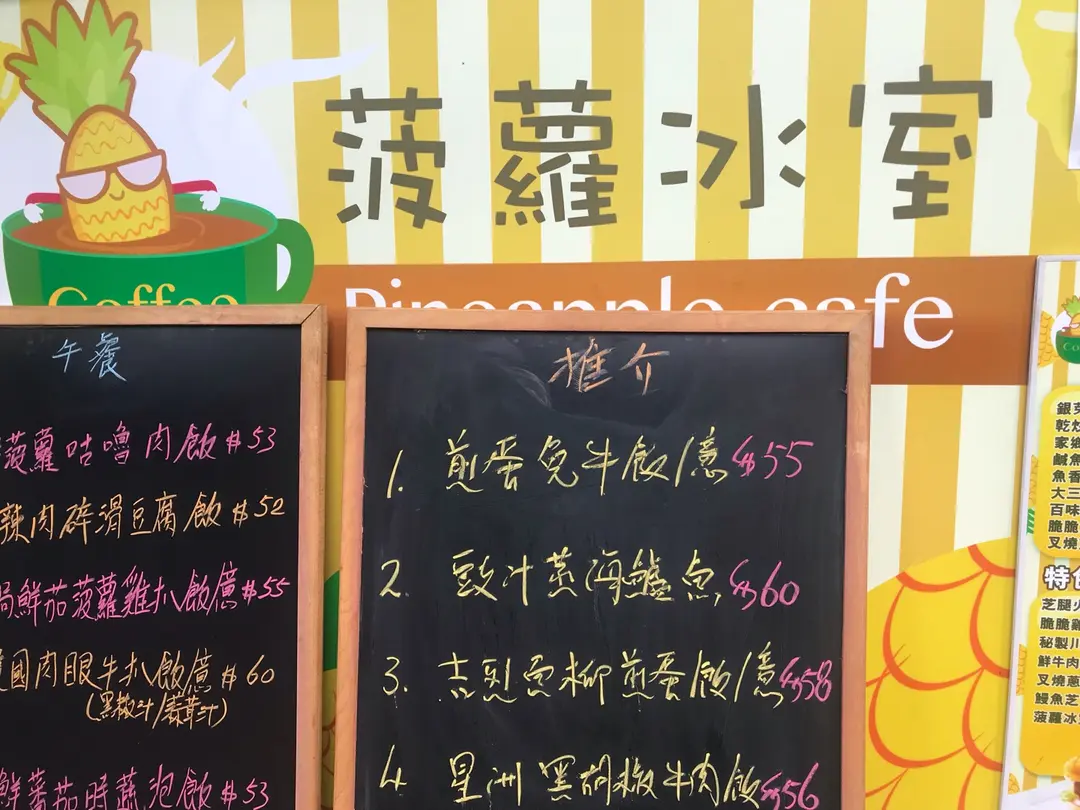 菠蘿冰室
Coffee
Pineapple cafe
午餐
菠蘿咕嚕肉飯 $53
辣肉碎滑豆腐飯 $52
鮮茄菠蘿雞扒飯 $55
國肉眼牛扒飯 $60
(黑椒汁/
鮮蕃茄時蔬泡飯 $53
推介
1. 煎蛋免牛飯/意 $55
2. 豉汁蒸海鱸魚 $60
3. 吉列魚柳煎蛋飯/意 $58
4. 星洲黑胡椒牛肉飯 $56
銀芽
乾炒
家鄉
鹹魚
魚香
大三
百味
脆脆
叉燒
特色
芝腿火
脆脆雞
秘製川
鮮牛肉
叉燒蔥
鰻魚芝
菠蘿冰